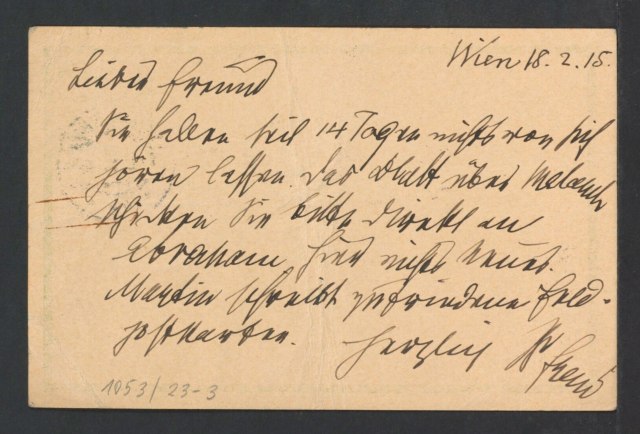 Wien 18.2.15.
Lieber Freund
Sie haben seit 14 Tagen nichts von sich
hören lassen. Das Blatt über Melanch
schicken Sie bitte direkt an
Abraham. Hier nichts Neues.
Martin schreibt zufriedene Feld-
postkarten.
Herzlich Ihr
Freud
1053/23-3